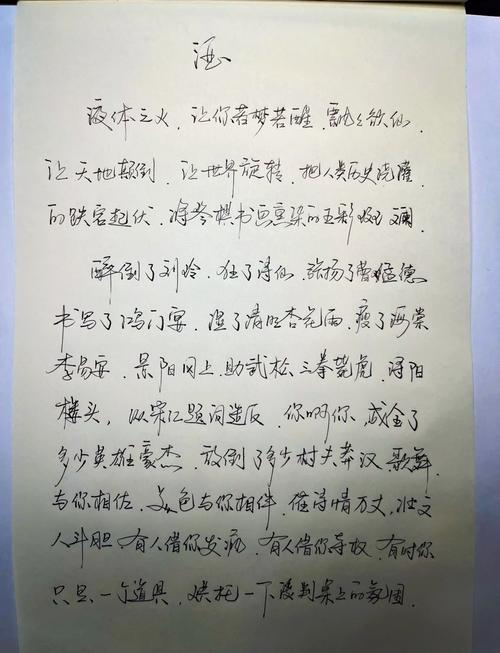 酒
液体之火，让你若梦若醒，飘飘欲仙，
让天地颠倒，让世界旋转，把人类历史浇灌
的跌宕起伏，将琴棋书画熏染的五彩斑斓
醉倒了刘伶，狂了诗仙，张扬了曹孟德
书写了鸿门宴，湿了清明杏花雨，瘦了海棠
李易安，景阳冈上，助武松三拳毙虎，浔阳
楼头，从宋江题词造反，你啊你，成全了
多少英雄豪杰，放倒了多少村夫莽汉，歌舞
与你相佐，美色与你相伴，催诗情万丈，壮文
人斗胆，有人借你发疯，有人借你夺权，有时你
只是一个道具，烘托一下谈判桌上的氛围．